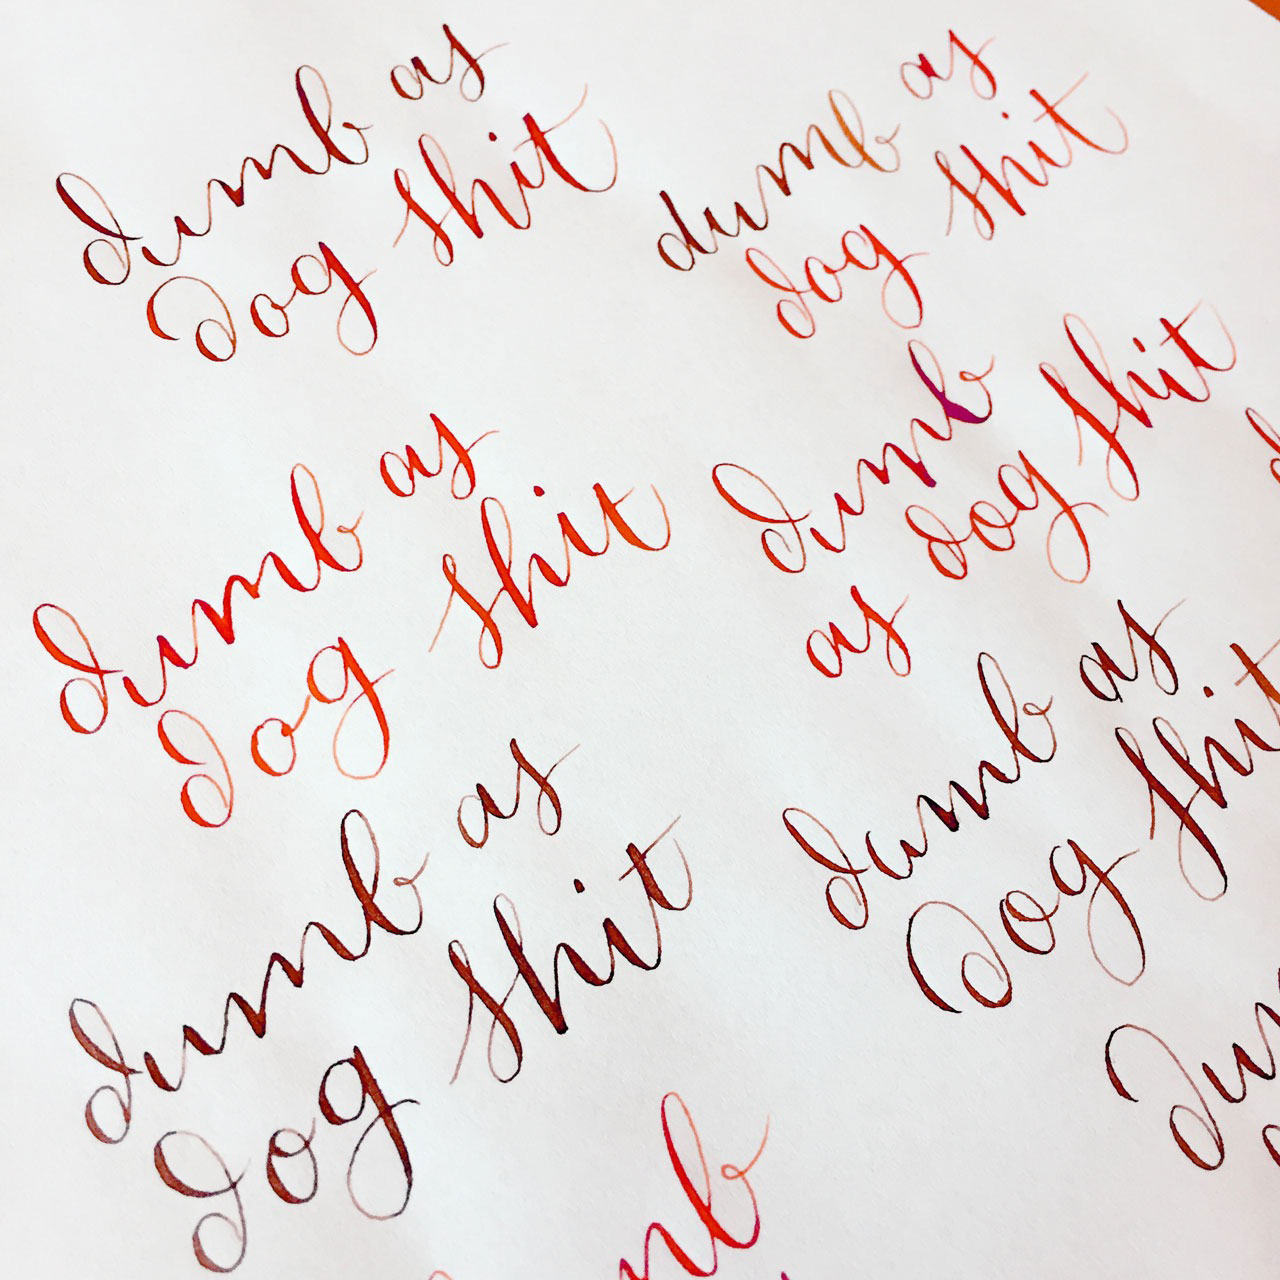 dumb as
dog shit
dumb as
dog shit
dumb as
dog shit
dumb
as dog shit
dumb as
dog shit
dumb as
dog shit